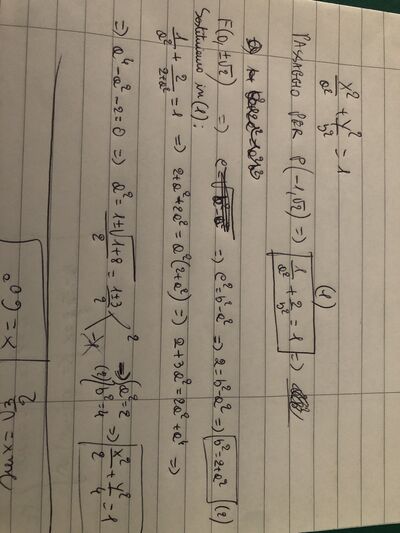 x²/a² + y²/b² = 1
PASSAGGIO PER P(-1,√2) => 1/a² + 2/b² = 1 (1) =>
F(0,±√2) => c² = b²-a² => 2 = b²-a² => b² = 2+a² (2)
Sostituiamo in (1):
1/a² + 2/2+a² = 1 => 2+a²+2a² = a²(2+a²) => 2+3a² = 2a²+a⁴ =>
=> a⁴-a²-2=0 => a² = 1±√1+8/2 = 1±3/2 2 -1 => a²=2 (2) b²=4 => x²/2 + y²/4 = 1
x = 60°
sen x = √3/2